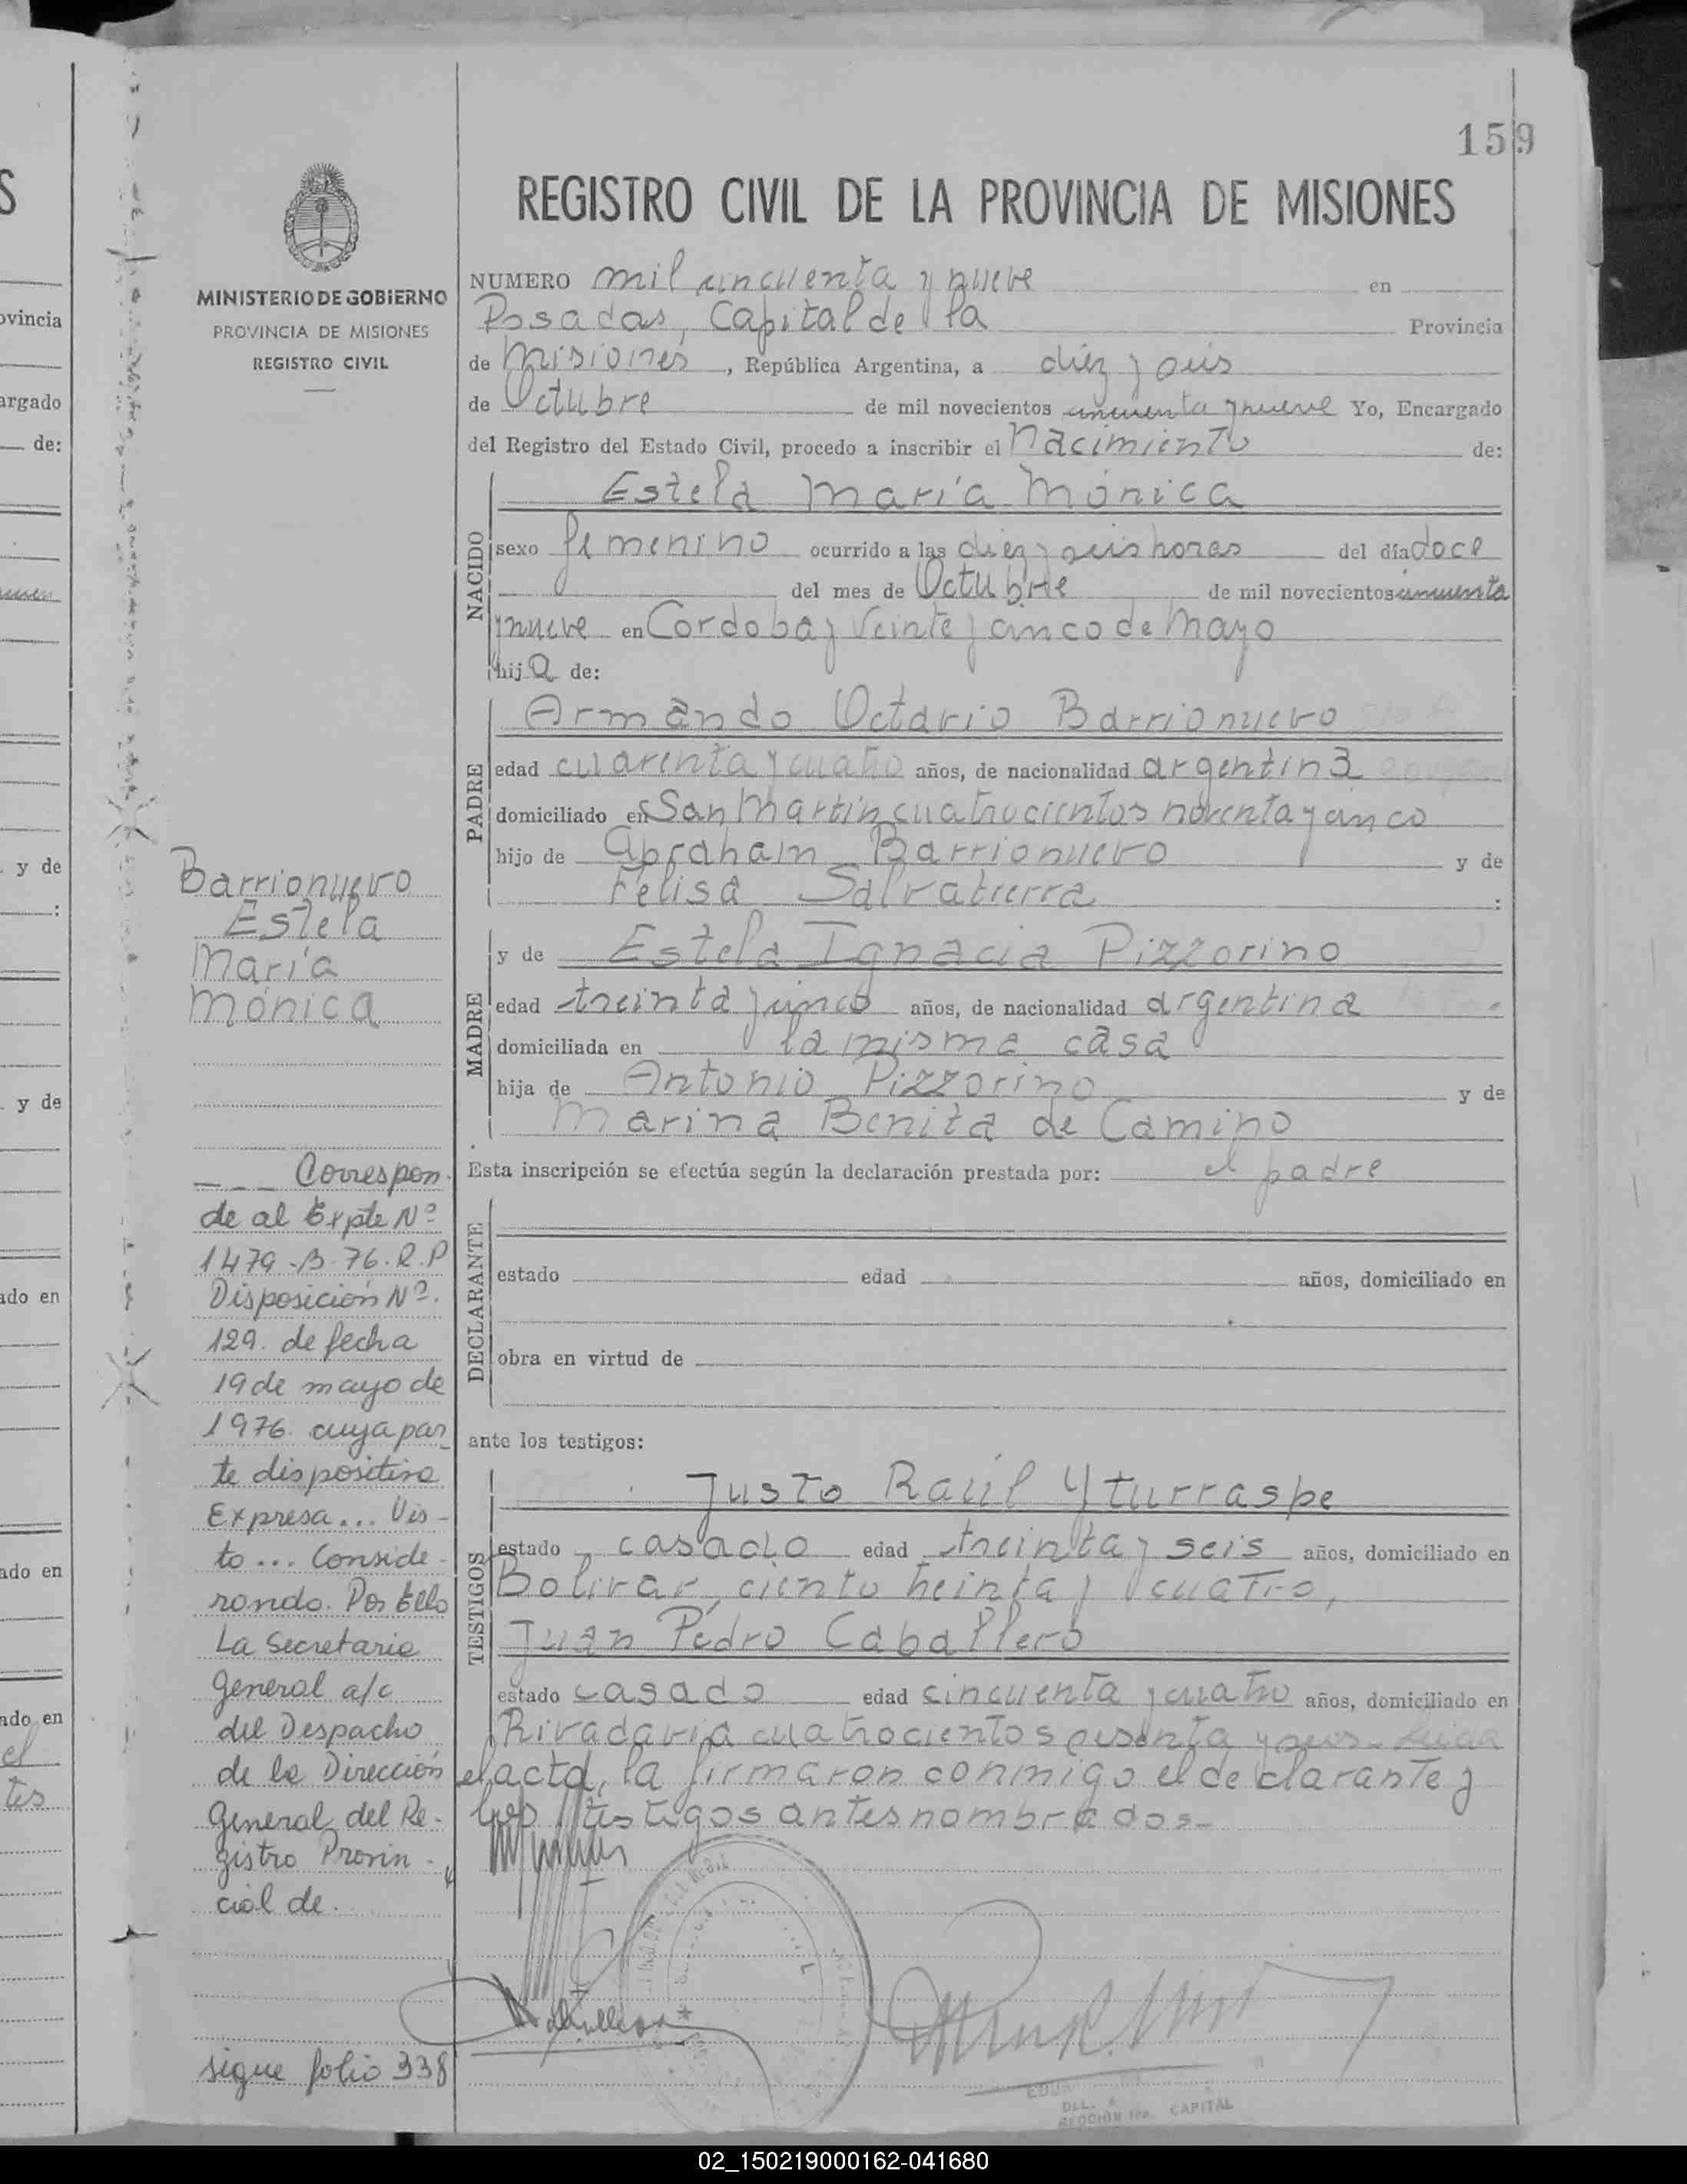 159
REGISTRO CIVIL DE LA PROVINCIA DE MISIONES
MINISTERIO DE GOBIERNO
PROVINCIA DE MISIONES
REGISTRO CIVIL
NUMERO mil cincuenta y nueve en
Posadas, Capital de la Provincia
de Misiones, República Argentina, a diez y seis
de Octubre de mil novecientos cincuenta y nueve Yo, Encargado
del Registro del Estado Civil, procedo a inscribir el nacimiento de:
NACIDO
Estela María Mónica
sexo femenino ocurrido a las diez y seis horas del día doce
del mes de Octubre de mil novecientos cincuenta
y nueve en Cordoba y Veinte y cinco de Mayo
hija de:
PADRE
Armando Octavio Barrionuevo
edad cuarenta y cuatro años, de nacionalidad argentina
domiciliado en San Martín cuatrocientos noventa y cinco
hijo de Abraham Barrionuevo y de
Felisa Salvatierra :
MADRE
y de Estela Ignacia Pizzorino
edad treinta y cinco años, de nacionalidad argentina
domiciliada en la misma casa
hija de Antonio Pizzorino y de
Marina Benita de Camino
Esta inscripción se efectúa según la declaración prestada por: el padre
DECLARANTE
estado edad años, domiciliado en
obra en virtud de
ante los testigos:
TESTIGOS
Justo Raúl Yturraspe
estado casado edad treinta y seis años, domiciliado en
Bolivar, ciento treinta y cuatro,
Juan Pedro Caballero
estado casado edad cincuenta y cuatro años, domiciliado en
Rivadavia cuatrocientos sesenta y seis- Leida
el acta, la firmaron conmigo el declarante y
los testigos antes nombrados-
Barrionuevo
Estela
María
Mónica
Correspon-
de al Expte Nº
1479-B-76.R.P
Disposición Nº.
129. de fecha
19 de mayo de
1976. cuya par
te dispositiva
Expresa... Vis-
to... Conside-
rando. Por Ello
La Secretaria
General a/c
del Despacho
de la Dirección
General del Re-
gistro Provin-
cial de.
sigue folio 338
SECCION 1ra. CAPITAL
02_150219000162-041680